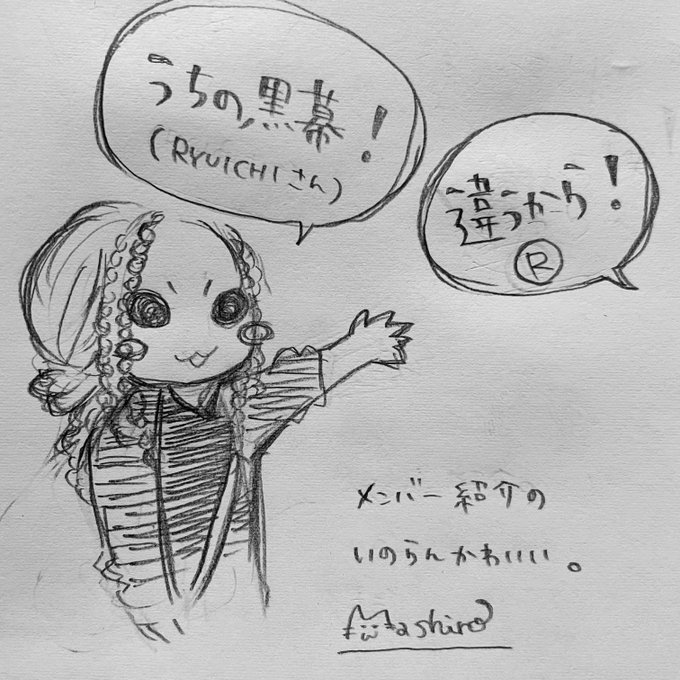 うちの黒幕!
(RYUICHIさん)
違うから!
R
メンバー紹介の
いのらんかわいい。
mashiro